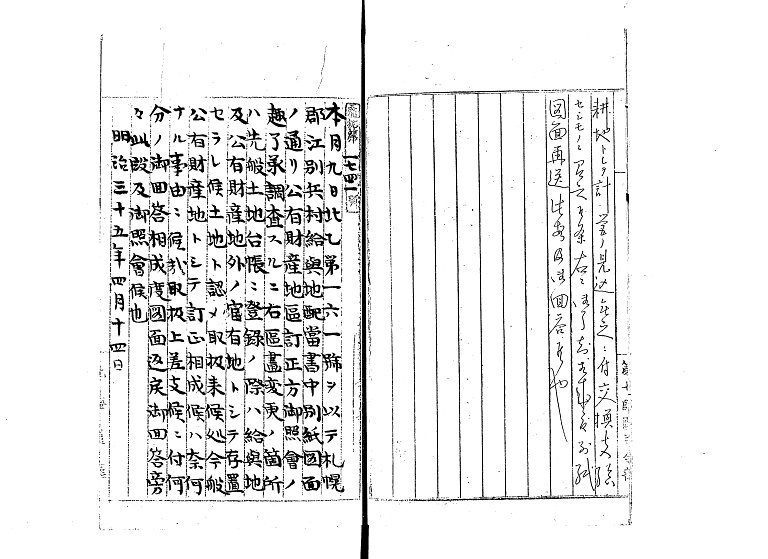 耕地トシテ計営ノ見込無之ニ付交換支障
図面再送此段及御回答候也
第一七四一号
本月九日北乙第一六一號ヲ以テ札幌
郡江別兵村給與地配當書中別紙図面
ノ通リ公有財産地區訂正方御照會ノ
趣了承調査スルニ右區畫変更ノ箇所
ハ先般土地台帳ニ登録ノ際ハ給與地
及公有財産地外ノ官有地トシテ存置
セラレ候土地ト認メ取扱来候処今般
公有財産地トシテ訂正相成候ハ奈何
ナル事由ニ候哉取扱上差支候ニ付何
分ノ御回答相成度図面返戻御回答旁
々此段及御照會候也
明治三十五年四月十四日